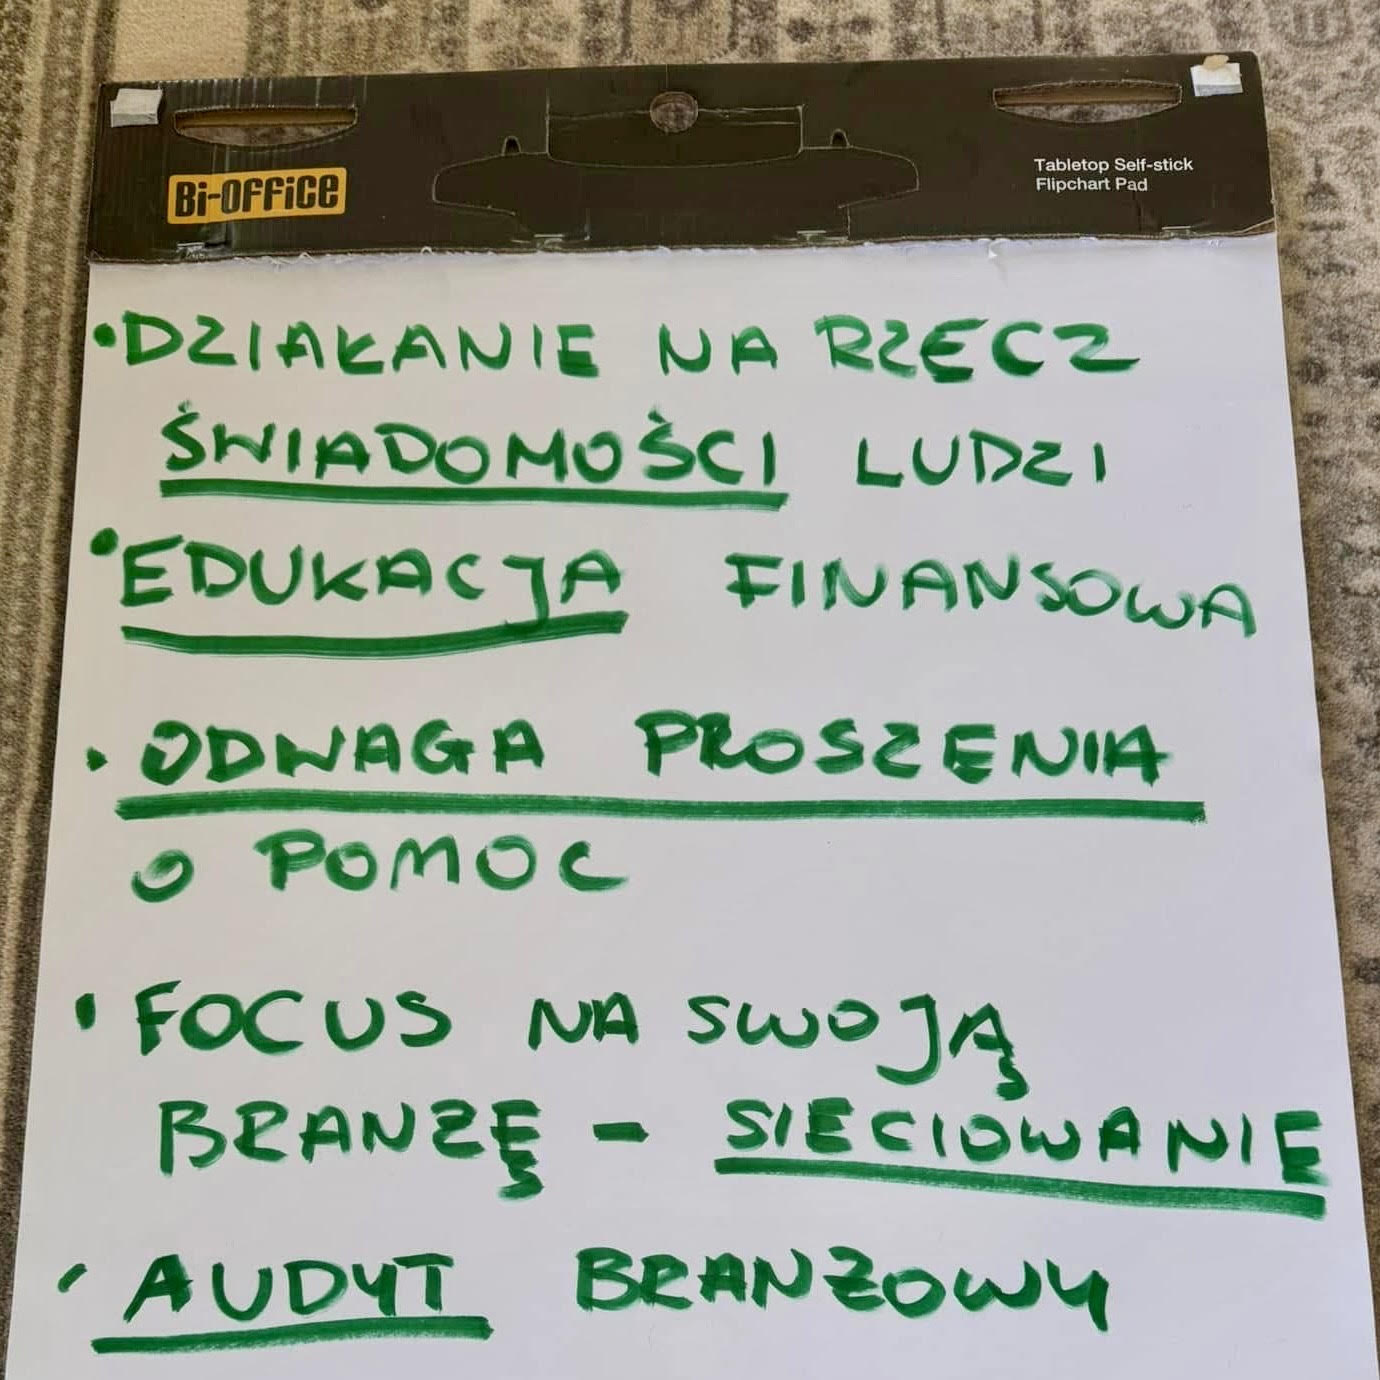 Bi-OFFiCE
Tabletop Self-stick
Flipchart Pad
• DZIAŁANIE NA RZECZ
ŚWIADOMOŚCI LUDZI
• EDUKACJA FINANSOWA
• ODWAGA PROSZENIA
O POMOC
• FOCUS NA SWOJĄ
BRANZĘ - SIECIOWANIE
• AUDYT BRANZOWY